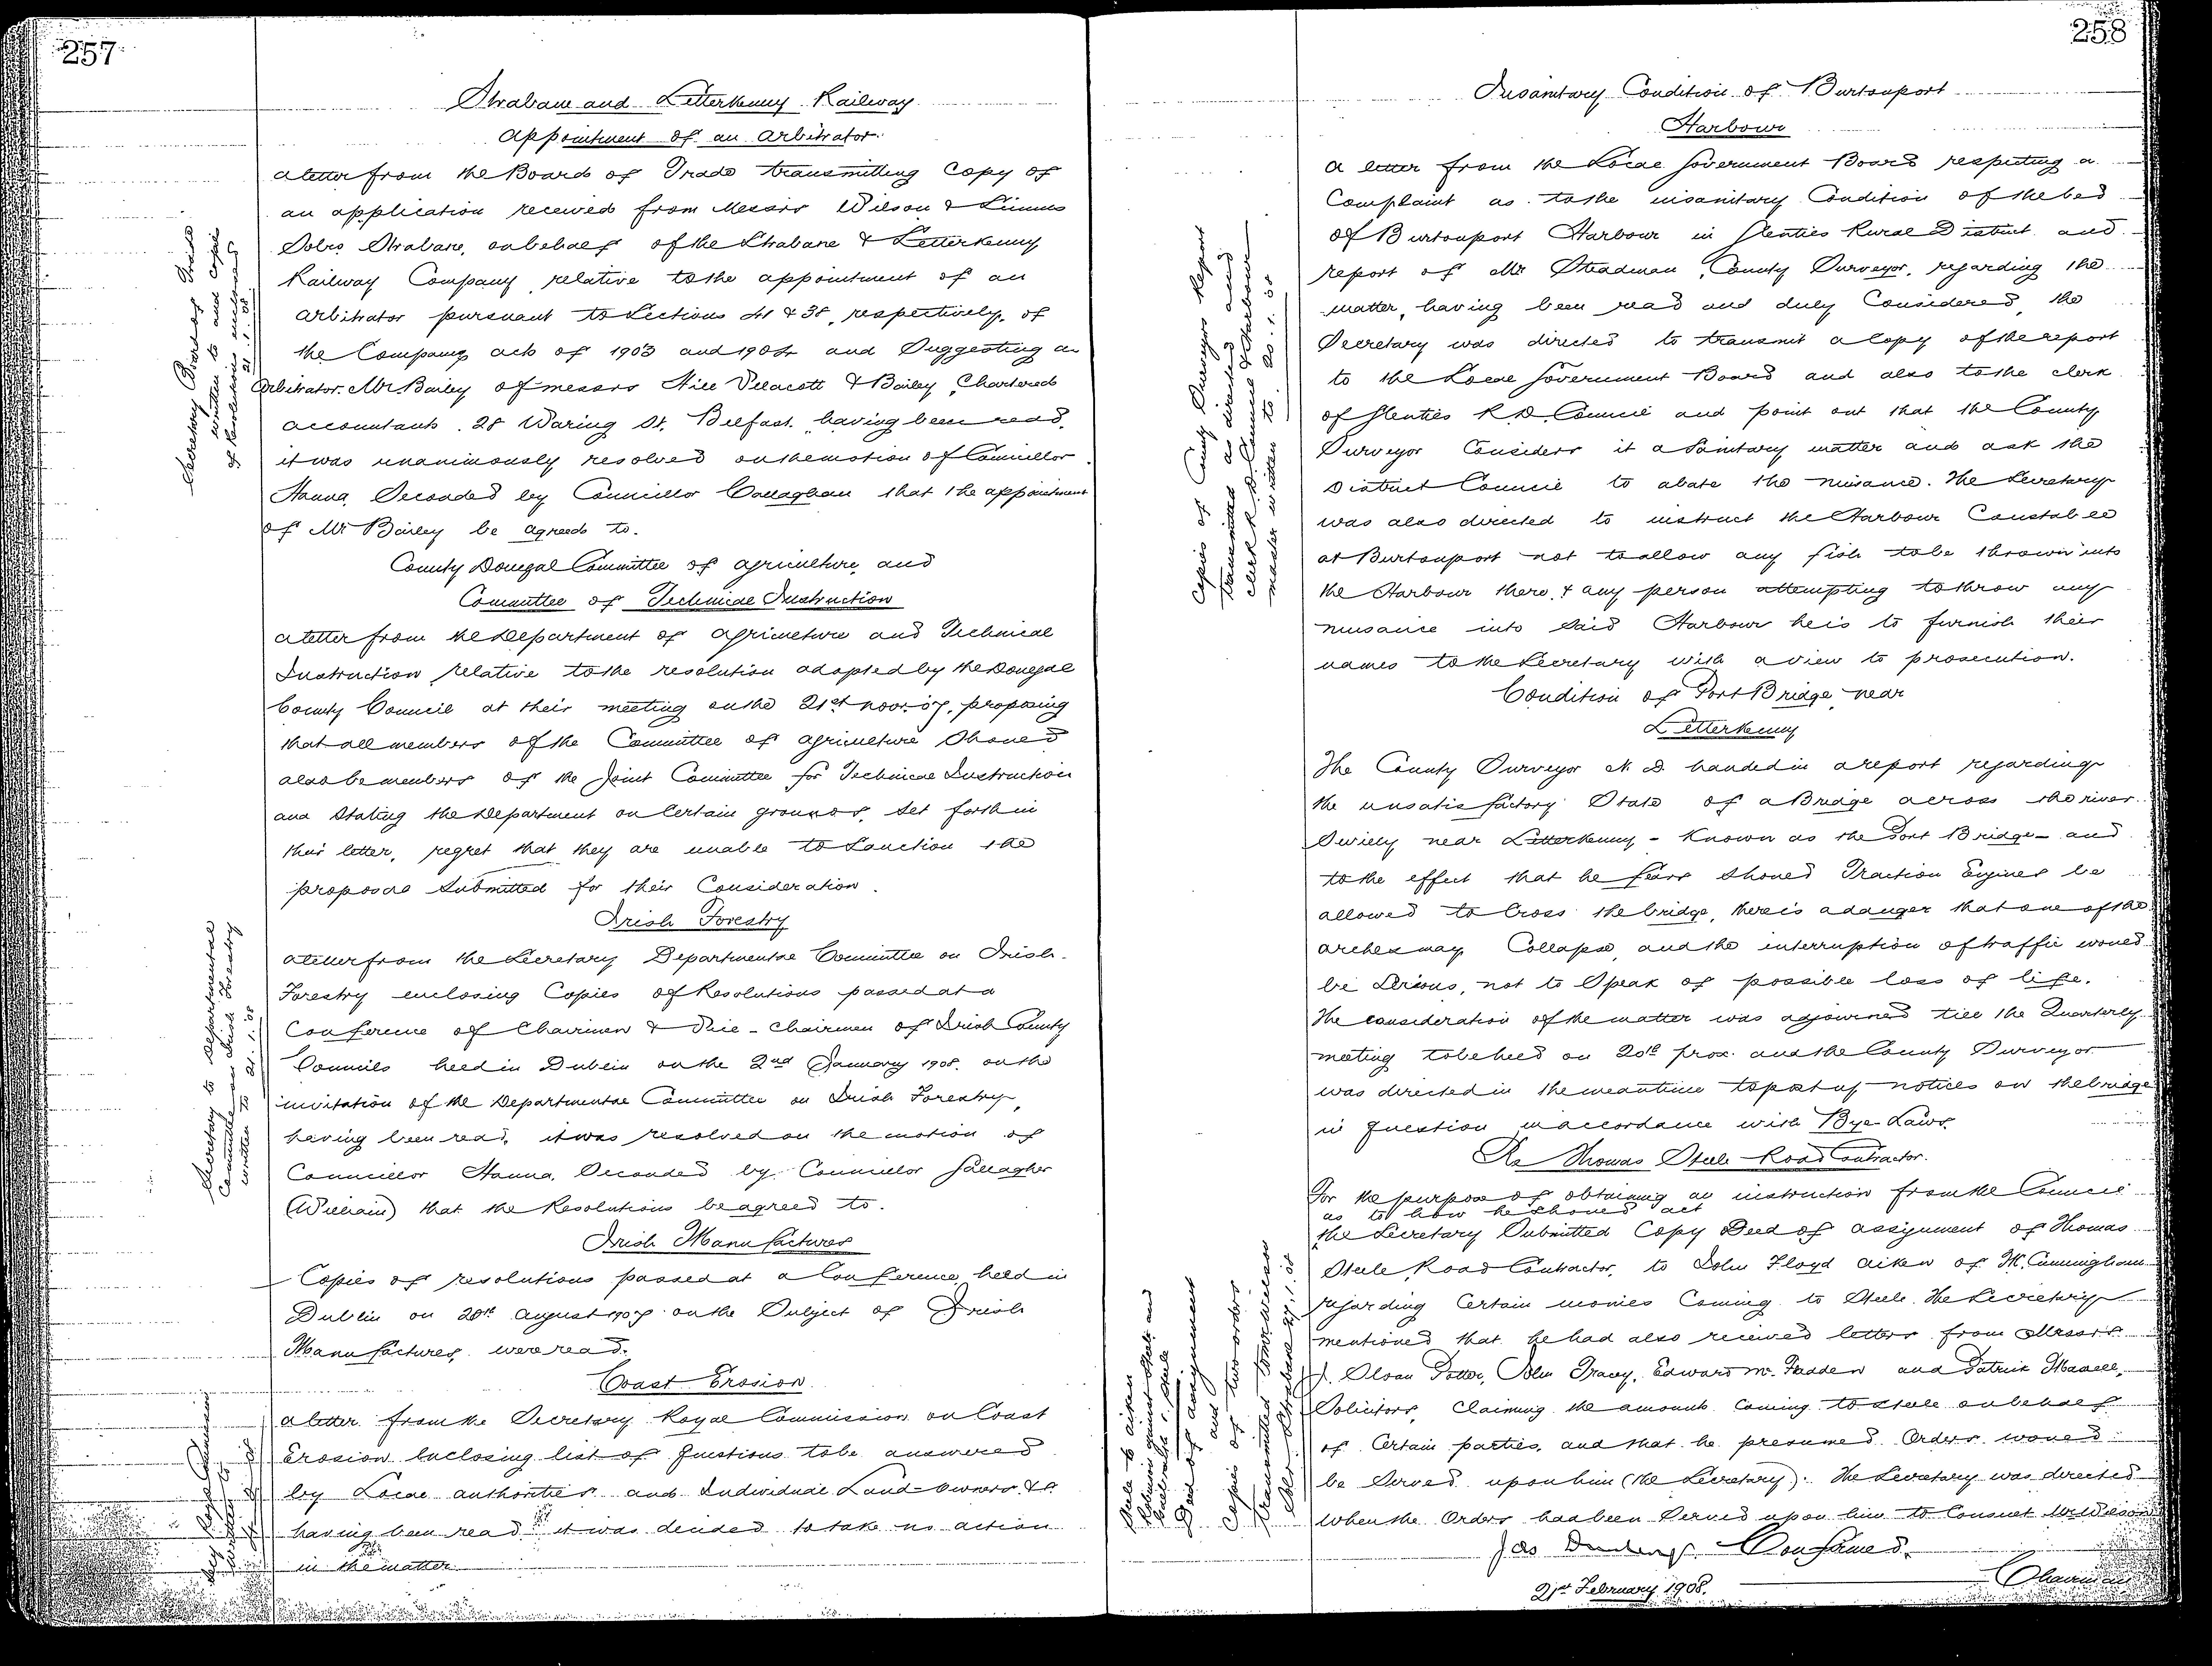 257
Strabane and Letterkenny Railway
Appointment of an Arbitrator.
A letter from the Board of Trade transmitting Copy of
an application received from Messrs Wilson & Simms
Solrs Strabane, on behalf of the Strabane & Letterkenny
Railway Company relative to the appointment of an
Arbitrator pursuant to Sections 41 & 38, respectively, of
the Companys acts of 1903 and 1904 and Suggesting as
Arbitrator Mr Bailey of messrs Hill Vellacott & Bailey, Chartered
accountants. 28 Waring St. Belfast. having been read,
it was unanimously resolved on the motion of Councillor
Hanna, Seconded by Councillor Callaghan that the appointment
of Mr Bailey be agreed to.
Secretary Board of Trade
written to and copies
of Resolutions enclosed
21.1.08
County Donegal Committee of Agriculture and
Committee of Technical Instruction
A letter from the Department of Agriculture and Technical
Instruction relative to the resolution adopted by the Donegal
County Council at their meeting on the 21st Novr. 07, proposing
that all members of the Committee of Agriculture Should
also be members of the Joint Committee for Technical Instruction
and Stating the Department on Certain grounds, Set forth in
their letter, regret that they are unable to Sanction the
proposal Submitted for their Consideration.
Irish Forestry
A letter from the Secretary Departmental Committee on Irish
Forestry enclosing Copies of Resolutions passed at a
Conference of Chairmen & Vice-Chairmen of Irish County
Councils held in Dublin on the 2nd January 1908. on the
invitation of the Departmental Committee on Irish Forestry,
having been read, it was resolved on the motion of
Councillor Hanna, Seconded by Councillor Gallagher
(William) that the Resolutions be agreed to.
Secretary to Departmental
Committee on Irish Forestry
written to 21.1.08
Irish Manufactures
Copies of resolutions passed at a Conference held in
Dublin on 20th August 1907 on the Subject of Irish
Manufactures, were read.
Coast Erosion
A letter from the Secretary Royal Commission on Coast
Erosion Enclosing list of questions to be answered
by Local authorities and Individual Land-owners &c.
having been read it was decided to take no action
in the matter
258
Insanitary Condition of Burtonport
Harbour
A letter from the Local Government Board respecting a
Complaint as to the insanitary Condition of the bed
of Burtonport Harbour in Glenties Rural District and
report of Mr Steadman, County Surveyor, regarding the
matter, having been read and duly Considered, the
Secretary was directed to transmit a Copy of the report
to the Local Government Board and also to the clerk
of Glenties R.D. Council and point out that the County
Surveyor Considers it a Sanitary matter and ask the
District Council to abate the nuisance. The Secretary
was also directed to instruct the Harbour Constable
at Burtonport not to allow any fish to be thrown into
the Harbour there, & any person attempting to throw any
nuisance into Said Harbour he is to furnish their
names to the Secretary with a view to prosecution.
Copies of County Surveyors Report
transmitted as directed and
Clerk R.D. Council & Harbour
master written to 20.1.08
Condition of Port Bridge near
Letterkenny
The County Surveyor N.D. handed in a report regarding
the unsatisfactory State of a Bridge across the river
Swilly near Letterkenny - Known as the Port Bridge - and
to the effect that he fears Should Traction Engines be
allowed to Cross the bridge, there is a danger that one of the
arches may Collapse, and the interruption of traffic would
be Serious, not to Speak of possible loss of life.
The consideration of the matter was adjourned till the Quarterly
meeting to be held on 20th prox. and the County Surveyor
was directed in the meantime to post up notices on the bridge
in question in accordance with Bye-Laws.
Re Thomas Steele Road Contractor.
For the purpose of obtaining an instruction from the Council
as to how he should act
the Secretary Submitted Copy Deed of assignment of Thomas
Steele, Road Contractor, to John Floyd Aiken of Mt. Cunningham
regarding Certain monies Coming to Steele. The Secretary
mentioned that he had also received letters from Messrs.
J. Sloan Potter, John Tracy, Edward Mc Fadden and Patrick Maxwell,
Solicitors, Claiming the amounts Coming to Steele on behalf
of Certain parties, and that he presumed Orders would
be Served upon him (the Secretary). The Secretary was directed
when the Orders had been Served upon him to Consult Mr Wilson
Steele to Aiken
Deed of assignment
and
Copies of two orders
transmitted
Solr Strabane 27.1.08
Confirmed.
Chairman
21st February 1908.